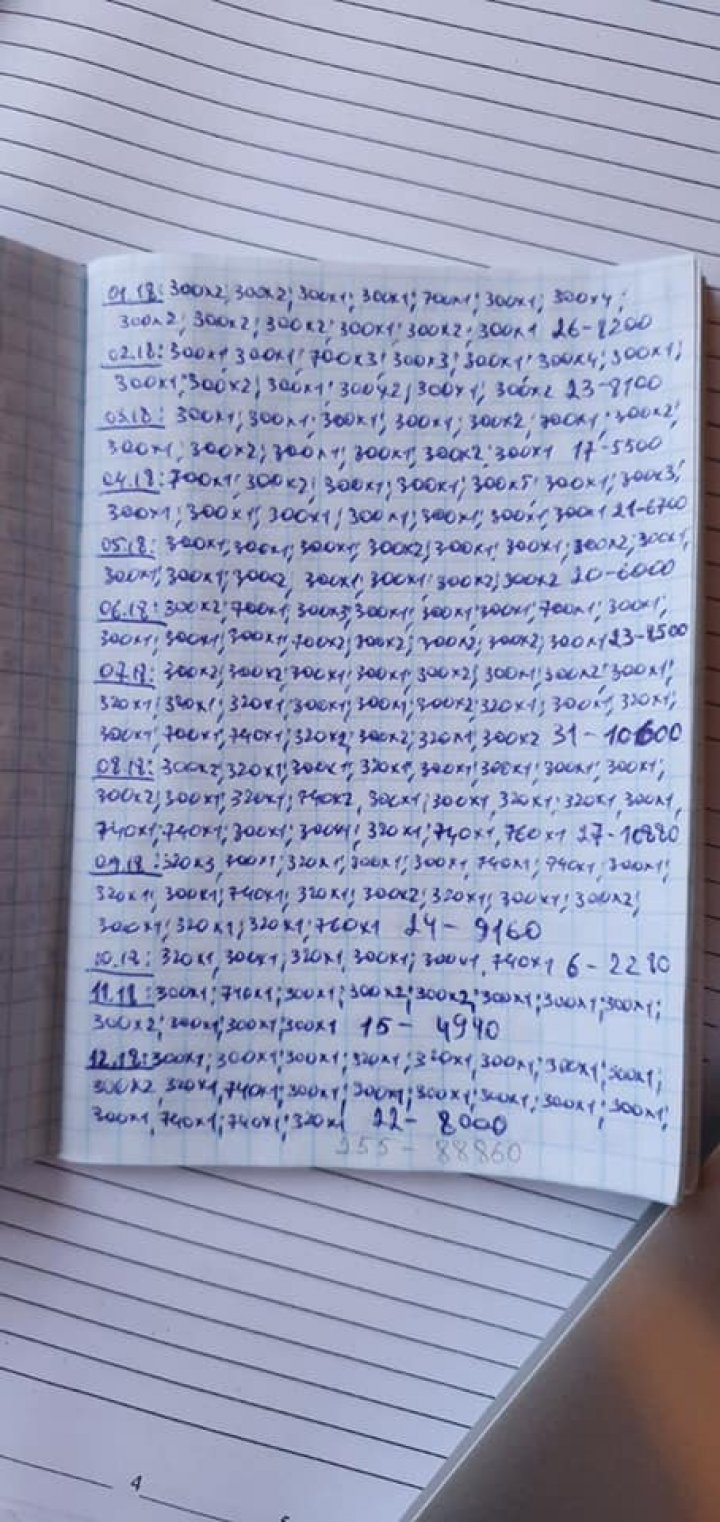 01.18: 300x2; 300x2; 300x1; 300x1; 700x1; 300x1; 300x4;
300x2; 300x2; 300x2; 300x1; 300x2; 300x1 26-8200
02.18: 300x1; 300x1; 700x3; 300x3; 300x1; 300x4; 300x1;
300x1; 300x2; 300x1; 300x2; 300x1; 300x2 23-8100
03.18: 300x1; 300x1; 300x1; 300x1; 300x2; 700x1; 300x2;
300x1; 300x2; 300x1; 300x1; 300x2; 300x1 17-5500
04.18: 700x1; 300x2; 300x1; 300x1; 300x5; 300x1; 300x3;
300x1; 300x1; 300x1; 300x1; 300x1; 300x1; 300x1 21-6700
05.18: 300x1; 300x1; 300x1; 300x2; 300x1; 300x1; 300x2; 300x1;
300x1; 300x1; 300x2; 300x1; 300x1; 300x2; 300x2 20-6000
06.18: 300x2; 700x1; 300x3; 300x1; 300x1; 300x1; 700x1; 300x1;
300x1; 300x1; 300x1; 700x2; 300x2; 300x2; 300x2; 300x1 23-8500
07.18: 300x2; 300x2; 300x1; 300x1; 300x2; 300x1; 300x2; 300x1;
320x1; 320x1; 320x1; 300x1; 300x1; 300x2; 320x1; 300x1; 320x1;
300x1; 700x1; 740x1; 320x2; 300x2; 320x1; 300x2 31-10600
08.18: 300x2; 320x1; 300x1; 320x1; 300x1; 300x1; 300x1; 300x1;
300x2; 300x1; 320x1; 740x2, 300x1; 300x1, 320x1; 320x1, 300x1,
740x1; 740x1; 300x1; 300x1; 320x1; 740x1, 760x1 27-10880
09.18: 320x3, 300x1; 320x1; 300x1; 300x1, 740x1; 740x1; 300x1;
320x1; 300x1; 740x1; 320x1; 300x2; 320x1; 300x1; 300x2;
300x1; 320x1; 320x1; 760x1 24-9160
10.18: 320x1, 300x1; 320x1, 300x1; 300x1, 740x1 6-2280
11.18: 300x1; 740x1; 300x1; 300x2; 300x2; 300x1; 300x1; 300x1;
300x2; 300x1; 300x1; 300x1 15-4940
12.18: 300x1; 300x1; 300x1; 320x1; 320x1, 300x1; 300x1; 300x1;
300x2, 320x1, 740x1; 300x1; 300x1; 300x1; 300x1; 300x1; 300x1;
300x1, 740x1; 740x1; 320x1 22-8000
255-88860